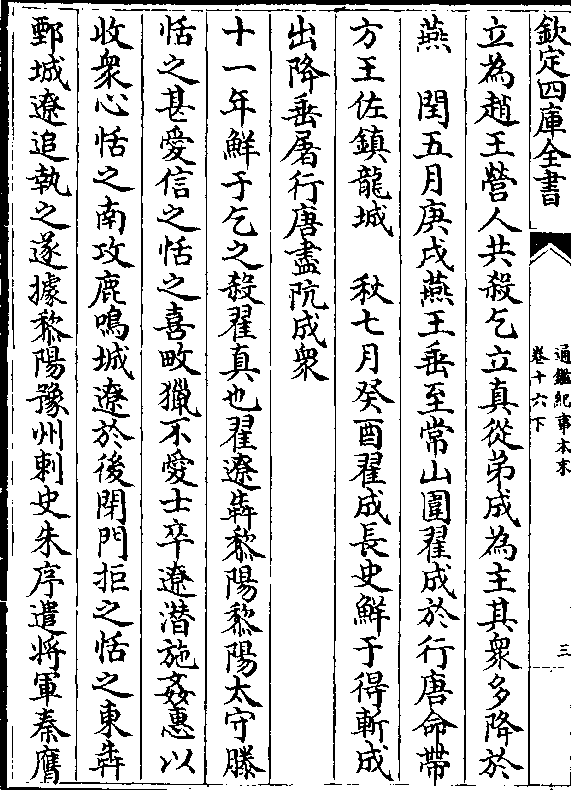 欽定四庫全書
通鑑紀事本末
卷十六下
三
立為趙王營人共殺乞立真從弟成為主其衆多降於
燕　閏五月庚戌燕王垂至常山圍翟成於行唐命帶
方王佐鎮龍城　秋七月癸酉翟成長史鮮于得斬成
出降垂屠行唐盡阬成衆
十一年鮮于乞之殺翟真也翟遼犇黎陽黎陽太守滕
恬之甚愛信之恬之喜畋獵不愛士卒遼潛施姦惠以
收衆心恬之南攻鹿鳴城遼於後閉門拒之恬之東犇
鄄城遼追執之遂據黎陽豫州刺史朱序遣將軍秦膺